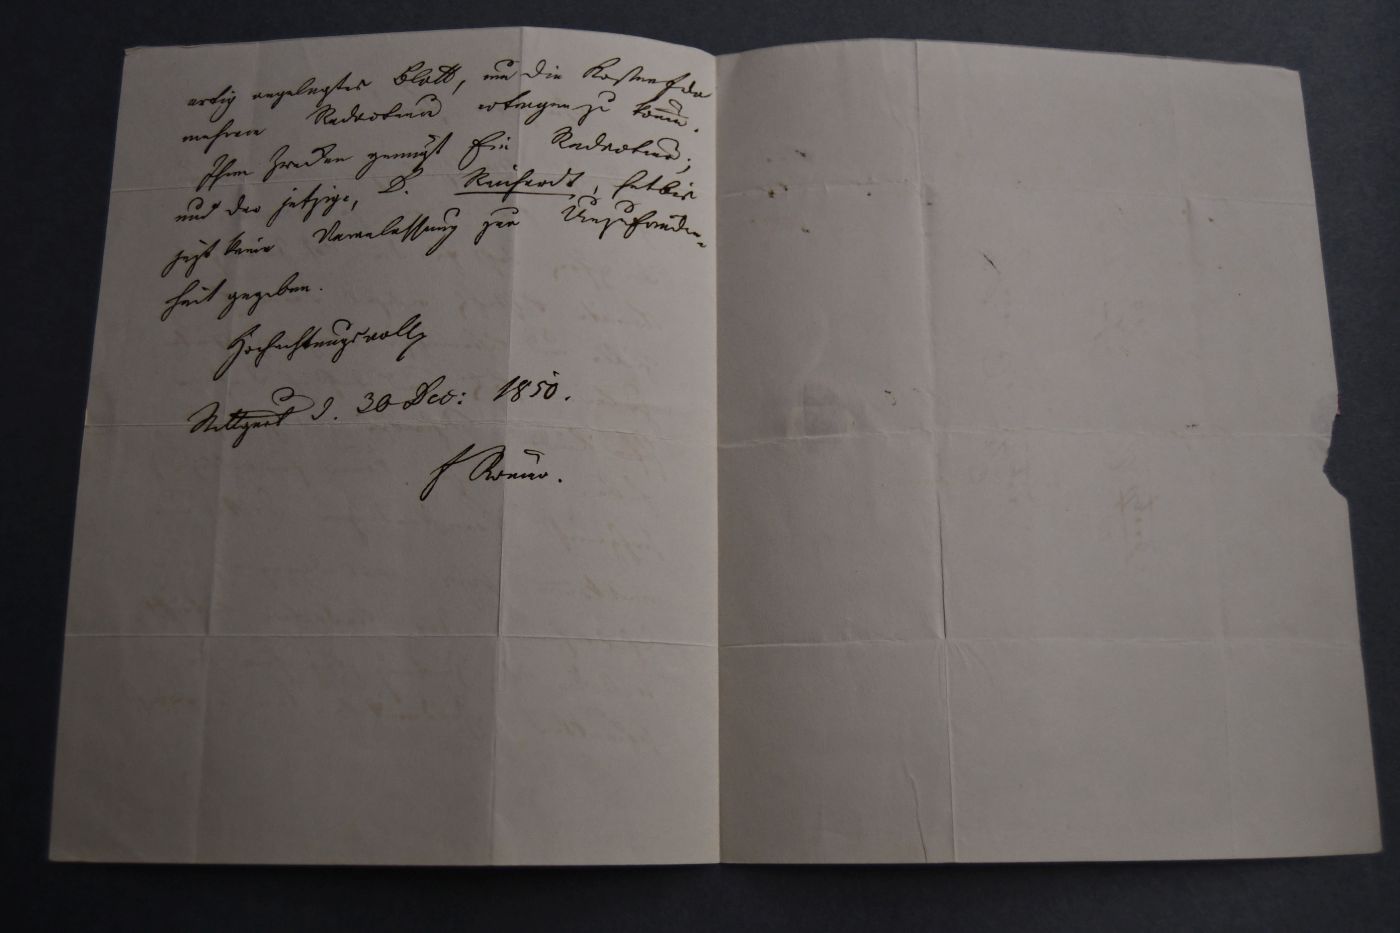 artig angelegtes Blatt, um die Kosten für
mehrere Redacteure ertragen zu können.
Ihren Zwecken genügt Ein Redacteur;
und der jetzige, D. Reinhardt, hat bis
jezt keine Veranlassung zur Unzufrieden-
heit gegeben.
Hochachtungsvoll
Stuttgart d. 30 Dec: 1850.